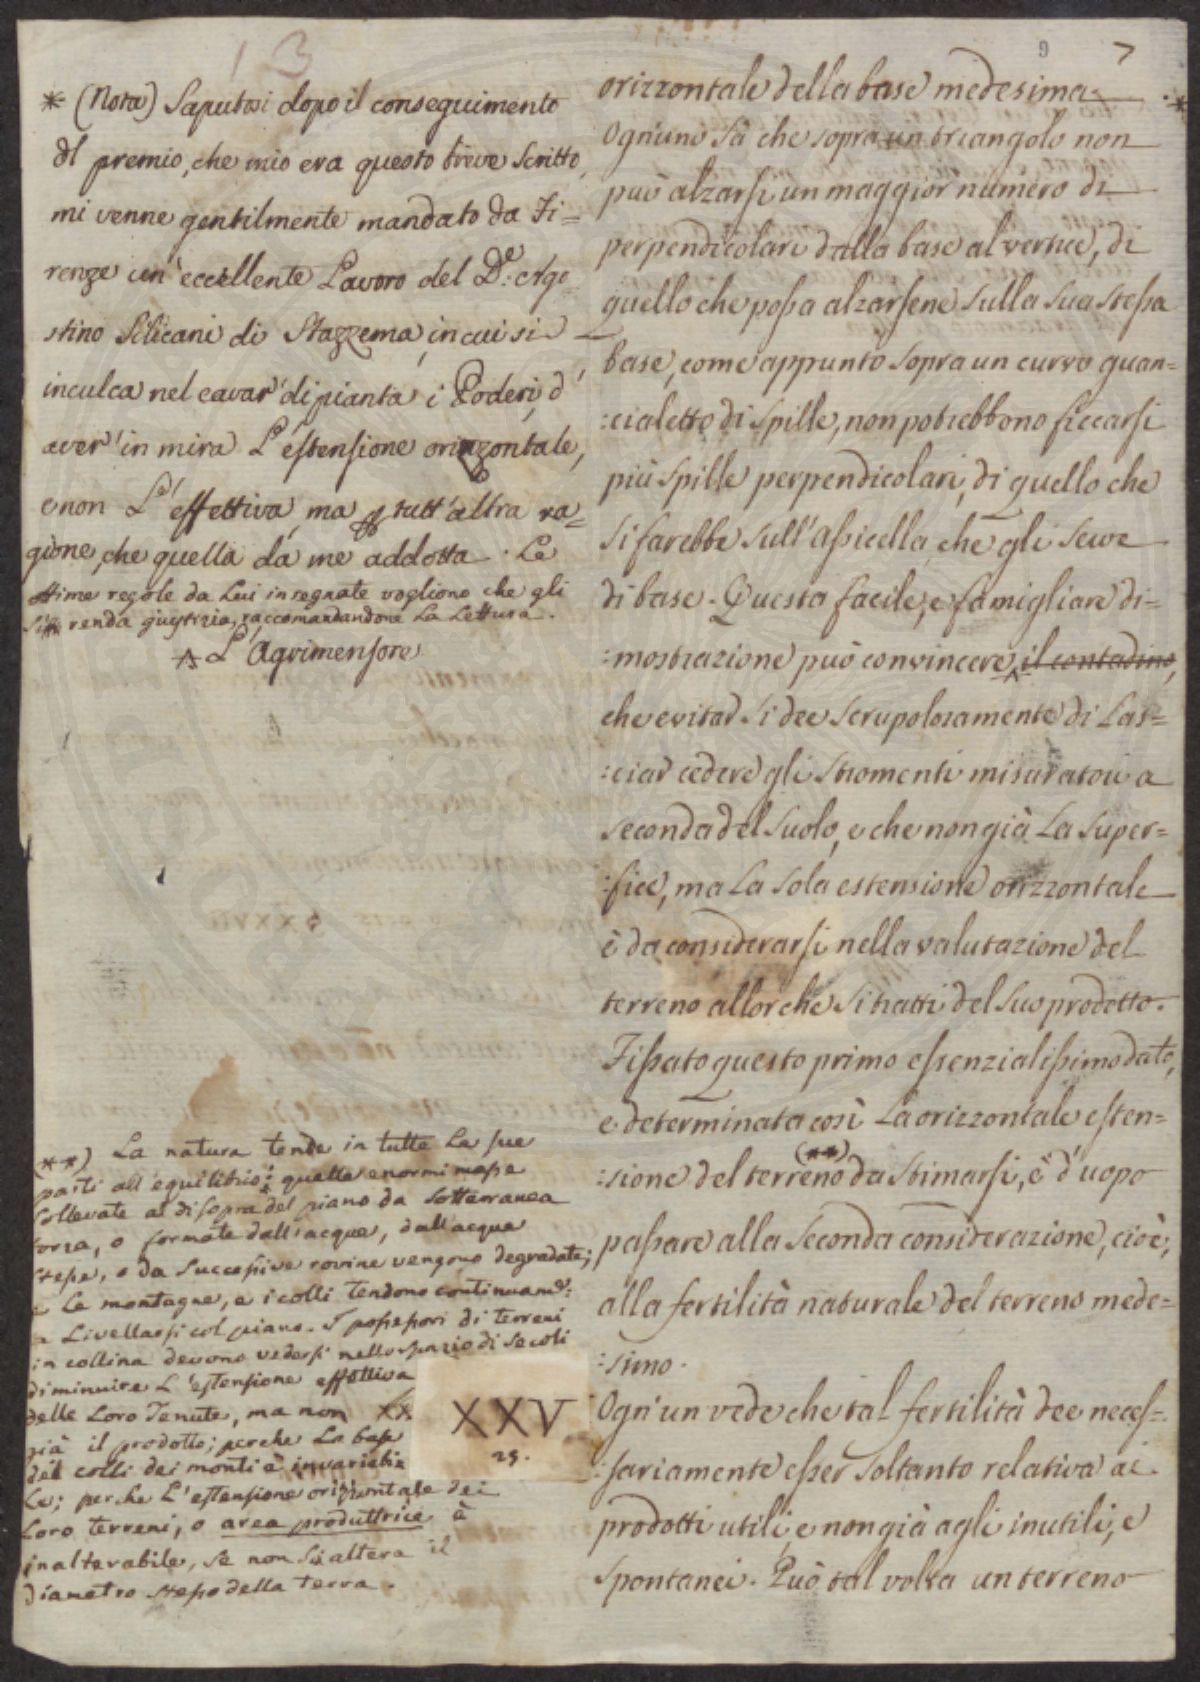 13
9
7
* (Nota) Saputosi dopo il conseguimento
del premio, che mio era questo breve scritto,
mi venne gentilmente mandato da Fi=
renze un'eccellente Lavoro del D.e Ago
stino Silicani di Stazzema, in cui si
inculca nel cavar' di pianta i Poderi, d'
aver' in mira L'estensione orizzontale,
e non L'effettiva, ma p tutt'altra ra=
gione, che quella da me addotta. Le
ottime regole da Lui insegnate vogliono che gli
si renda giustizia, raccomandandone La Lettura.
^ L'Agrimensore
**) La natura tende in tutte Le sue
parti all'equilibrio: quelle enormi masse
sollevate al di sopra del piano da sotterranea
forza, o formate dall'acque, dall'acque
stesse, o da successive rovine vengono degradate;
e Le montagne, e i colli tendono continuam.e
a Livellarsi col piano. I possessori di terreni
in collina devono vedersi nello spazio di secoli
diminuire L'estensione effettiva
delle Loro Tenute, ma non XX
già il prodotto; perche La base
dei colli dei monti è invariabi
Le; perche L'estensione orizzontale dei
Loro terreni, o area produttrice è
inalterabile, se non si altera il
diametro stesso della terra.
XXV
25.
orizzontale della base medesima. *
Ogn'uno sà che sopra un triangolo non
può alzarsi un maggior numero di
perpendicolari dalla base al vertice, di
quello che possa alzarsene sulla sua stessa
base, come appunto sopra un curvo guan=
:cialetto di spille, non potrebbono ficcarsi
più spille perpendicolari, di quello che
si farebbe sull'assicella, che gli serve
di base. Questa facile, e famigliare di=
:mostrazione può convincere ^ il contadino,
che evitar si dee scrupolosamente di Las=
:ciar cedere gli stromenti misuratori a
seconda del suolo, e che non già La super=
:ficie, ma La sola estensione orizzontale
è da considerarsi nella valutazione del
terreno allorche si tratti del suo prodotto.
Fissato questo primo essenzialissimo dato,
e determinata così La orizzontale esten=
(**)
:sione del terreno da stimarsi, è d'uopo
passare alla seconda considerazione, cioè,
alla fertilità naturale del terreno mede=
:simo.
Ogn'un vede che tal fertilità dee neces=
:sariamente esser soltanto relativa ai
prodotti utili, e non già agli inutili, e
spontanei. Può tal volta un terreno